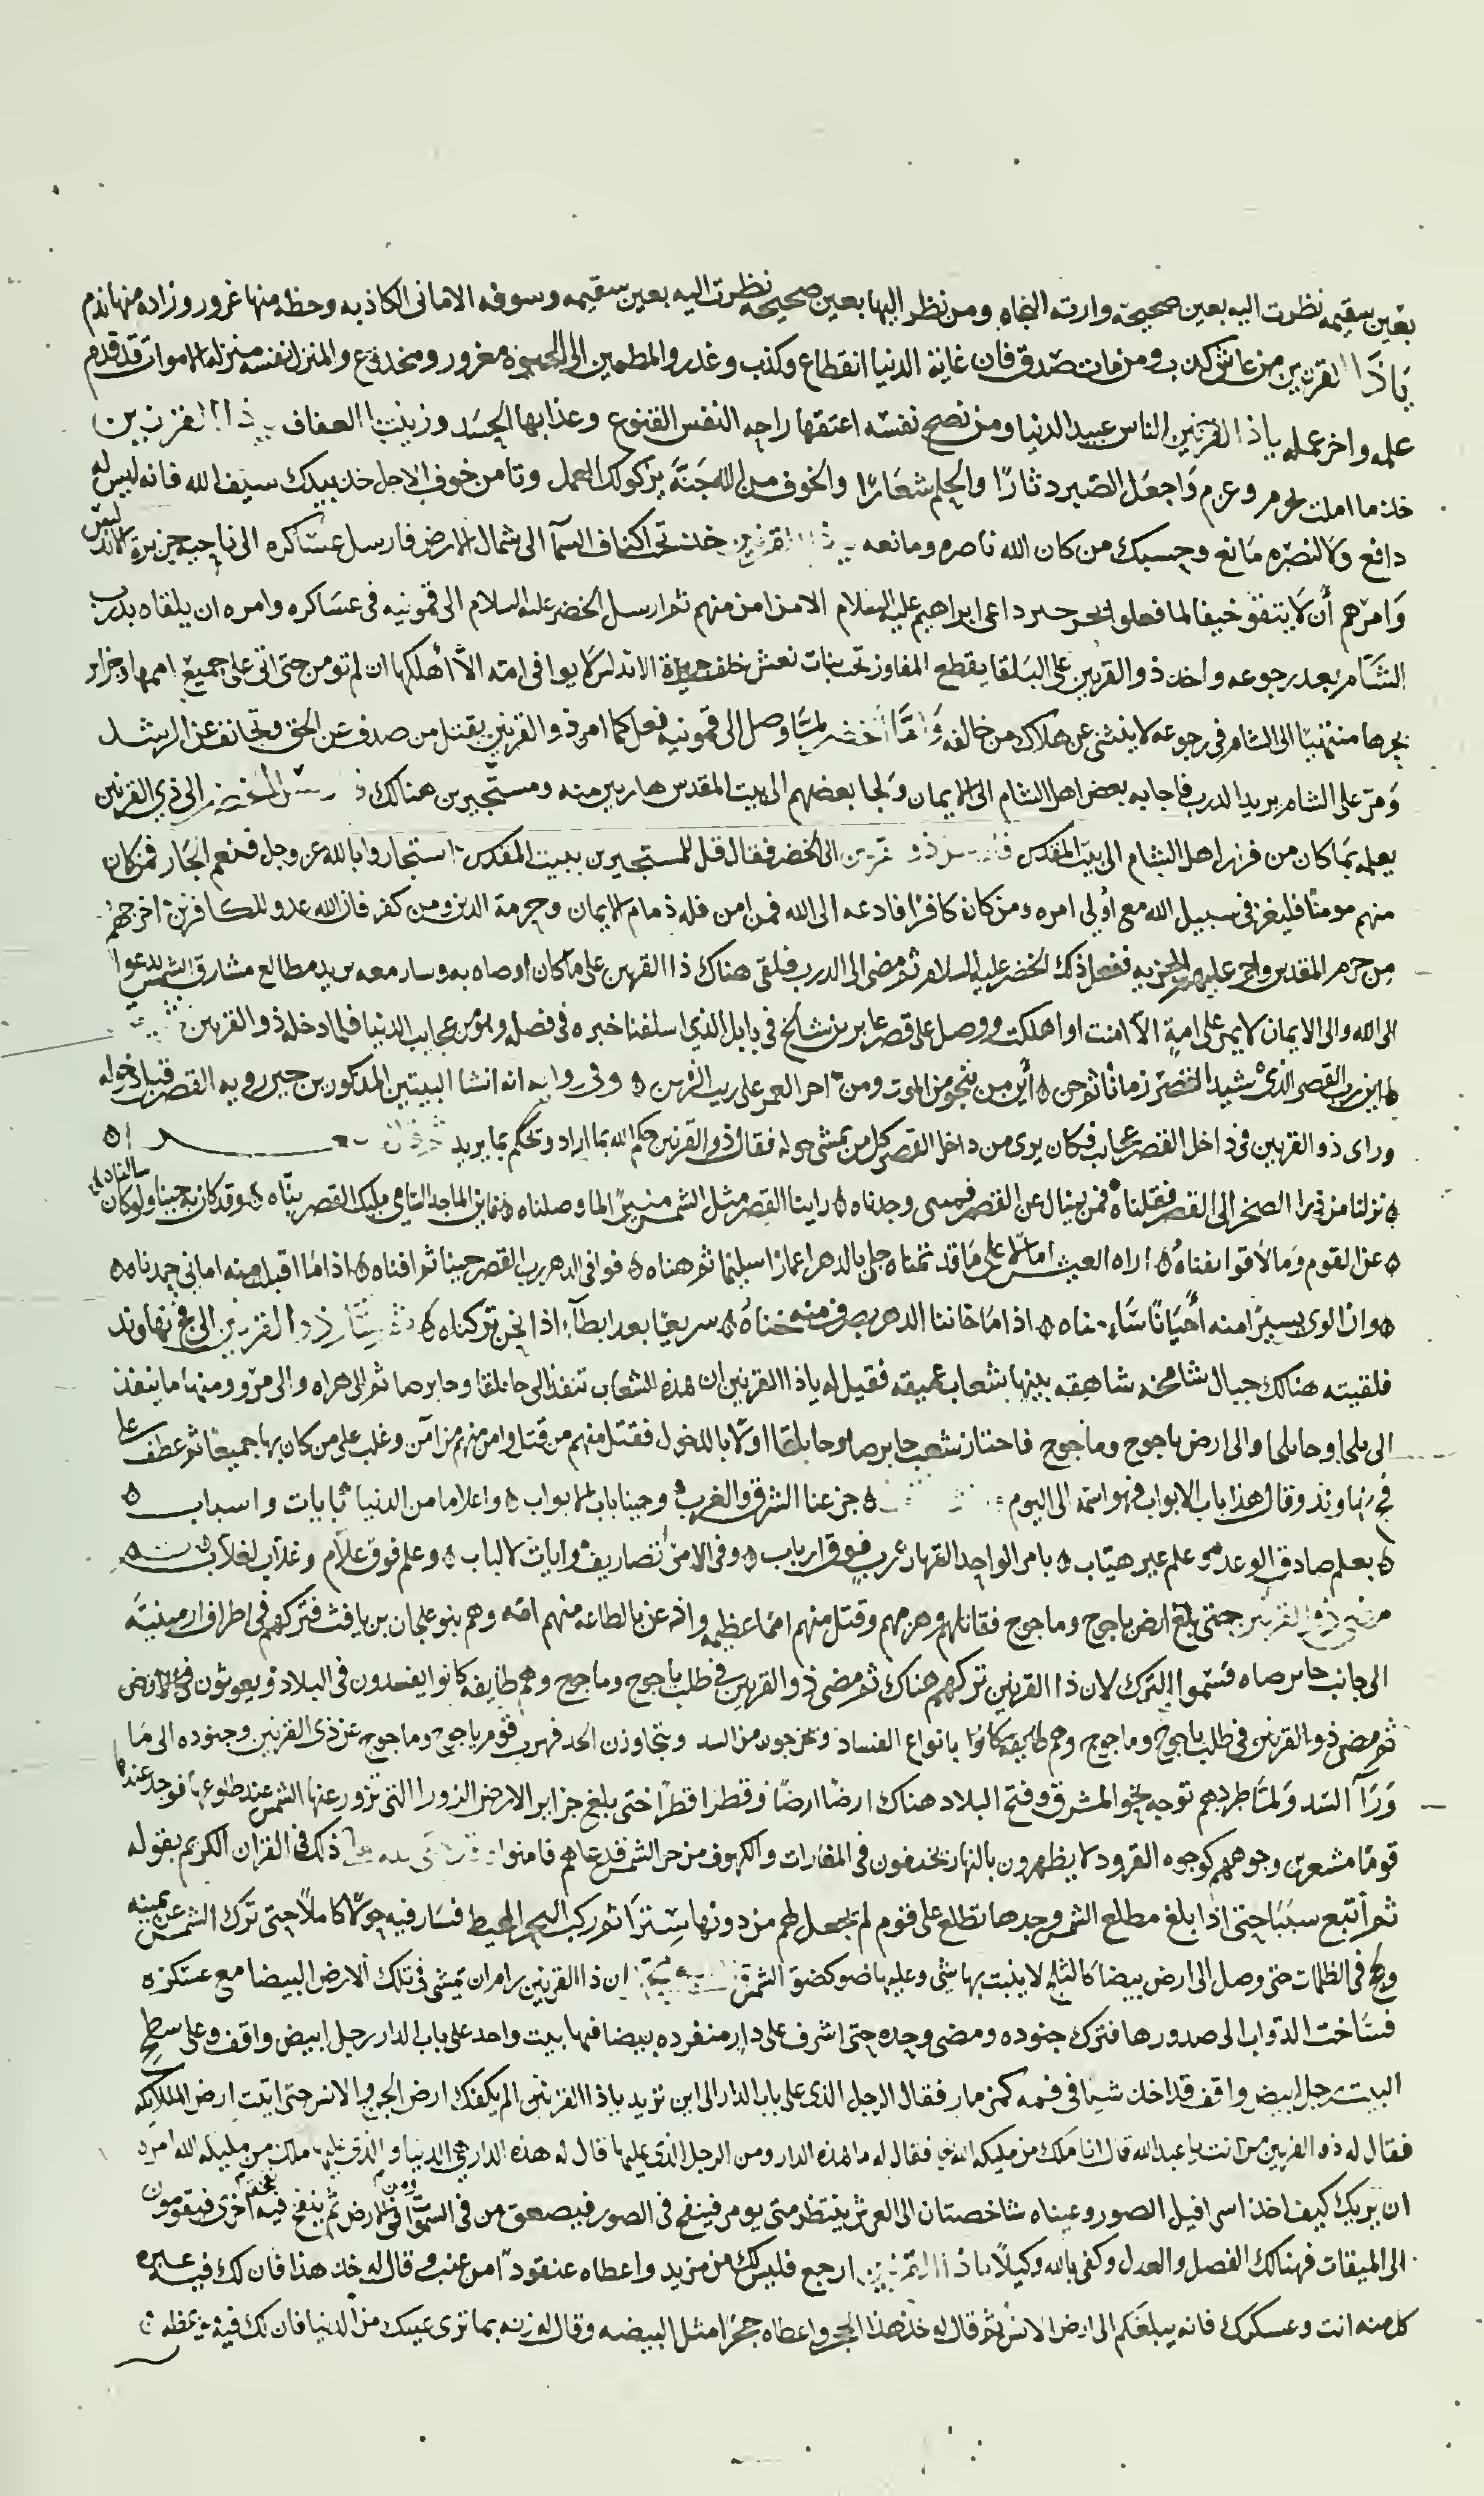 بعين سقيمه نظرت اليه بعين صحيحة وارته النجاه ومن نظر اليها بعين صحيحه نظرت اليه بعين سقيمه وسوفه الامانى الكاذبه وحظه منها غرور وزاده منها ندم
ياذا القرنين من عاش كذب ومن مات صدق فان غاية الدنيا انقطاع وكذب وغدر والمطمين الى معزور ومخدوع والمنزل نفسه منزلة الاموات قد قدم
عمله واخر عمله ياذا القرنين الناس عبيد الدنيا ومن نصح نفسه اعتقها راحه النفس القنوع وعذابها الحسد وزينتها العفاف ياذا القرنين
خذ ما املت بحزم وعزم واجعل الصبر دثارًا والحلم شعارًا والخوف من الله جنة يزكو لك العمل وتامن خوف الاجل خذ بيدك سيف الله فانه ليس له
دافع ولا لنصره مانع وحسبك من كان الله ناصره ومانعه ياذا القرنين خذ تحت اكناف السمآ الى شمال الارض فارسل عساكره الى ناحيه جزيرة الاندلس
وامرهم أن لا يتقو خيفا لما فعلوا داعى ابراهيم عليه السلام الا من امن منهم ثم ارسل الخضر عليه السلام الى قمونيه فى عساكره وامره ان يلقاه بدرب
الشام بعد رجوعه واخذ ذو القرنين على البلقا يقطع المفاوز تحت بنات نعش خلف جزيرة الاندلس لا يوافى امته الا أهلكها ان لم تومن حتى اتى على جميع اممها وجزاير
بحرها منتهيا الى الشام فى رجوعه لا ينثنى عن هلاك من خالفه واما الخضر لما وصل الى قمونيه فعل كما امر ذو القرنين يقتل من صدف عن الحق وتجانف عن الرشد
ومر على الشام يريد الدرب فاجابه بعض اهل الشام الى الايمان ولجا بعضهم الى بيت المقدس هاربين منه ومستجيرين هنالك الخضر الى ذي القرنين
يعلمه بما كان من فرار اهل الشام الى بيت المقدس ذو القرنين الى الخضر فقال قل للمستجيرين ببيت المقدس استجاروا بالله عز وجل فنعم الجار فمن كان
منهم مومنًا فليغز فى سبيل الله مع أولى امره ومن كان كافرًا فادعه الى الله فمن امن فله ذمام الايمان وحرمة الدين ومن كفر فان الله عدو للكافرين اخرجهم
من حرم المقدس واجر عليهم الجزيه ففعل ذلك الخضر عليه السلام ثم مضى الى الدرب فلقى هناك ذا القرنين على ما كان اوصاه به وسار معه يريد مطالع مشارق الشمس يدعوا
الى الله والى الايمان لا يمر على امة الا امنت او اهلكت ووصل على قصر عابر بن شالخ فى بابل الذى اسلفنا خبره فى فصله وهو من عجايب الدنيا فلما دخله ذو القرنين
اين رب القصر الذى شيد القصر زمانًا ثم أين من ينجو من الموت ومن العمر على ريب الزمن ٥ وفى روايه انه انشا البيتين المذكورين حين رويه القصر قبل دخوله
وراى ذو القرنين فى داخل القصر عجايب فكان يرى من داخل القصر كل من يمشى حوله فقال ذو القرنين حكم الله بما اراد وتحكم بما يريد
نزلنا من ذرا الصخر الى القصر فقلناه ٥ فمن يسال عن القصر وجدناه ٥ راينا القصر مثل الشمس منيرًا لما وصلناه ٥ فاين الماجد مليك القصر بناه ٥ وقد كان
عن القوم وما لاقوا اراه العيش على ما قد تمناه بالدهر ثم هناه ٥ فوافى الدهر رب القصر حينا ثم افناه ٥ اذ اما اقبل منه امانى حمدناه ٥
وان الوى يسيرًا منه أحيانًا ٥ اذ اما خاننا الدهر بصرف منه خناه ٥ سريعًا بعد ابطآء اذا نحن تركناه ٥ ذو القرنين الى فج نهاوند
فلقيته هنالك جبال شامخه شاهقه بينها شعاب عميقه فقيل له ياذا القرنين ان هذه الشعاب تنفذ الى جابلقا وجابرصا ثم الى هراه والى مرو ومنها ما ينفذ
الى بلخا وجابلخا والى ارض ياجوج وماجوج فاختار شعب جابرصا وجابلقا اولا بالدخول فقتل منهم من قتل وامن منهم من آمن وغلب على من كان بها جميعًا ثم عطف على
فج نهاوند وقال هذا باب الابواب فهو اسمه الى اليوم ٥ جزعنا الشرق والغرب وجينا باب الابواب ٥ واعلاما من الدنيا بايات واسباب ٥
٥ بعلم صادق الوعد علم غير هياب ٥ بامر الواحد القهار رب فوق ارباب ٥ وفى الامر تصاريف وايات لالباب ٥ وعلم فوق علام وغلاب لغلاب ٥
مضى ذو القرنين حتى بلغ ارض ياجوج وماجوج فقاتلهم وهزمهم وقتل منهم امما عظيمه واذعن بالطاعه منهم امه وهم بنو علجان بن يافث فتركهم فى اطراف ارمينيه
الى جانب جابرصاه فسموا الترك لان ذا القرنين تركهم هناك ثم مضى ذو القرنين فى طلب ياجوج وماجوج وهم طايفه كانوا يفسدون فى البلاد ويعيثون فى الارض
ثم مضى ذو القرنين فى طلب ياجوج وماجوج وهم طايفه كانوا بانواع الفساد ويخرجون من السد ويتجاوزن الحد فهرب قوم ياجوج وماجوج عن ذى القرنين وجنوده الى ما
ورآ السد ولما طردهم توجه نحو المشرق وفتح البلاد هناك ارضًا ارضًا وقطرا قطرًا حتى بلغ جزاير الارض الزورا التى تزور عنها الشمس عند طلوعها فوجد عندها
قومًا مشعرين وجوههم كوجوه القرود لا يظهرون بالنهار يختفون فى المغارات والكهوف من حر الشمس فدعاهم فامنوا ذلك فى القران الكريم بقوله
ثم أتبع سببًا حتى اذا بلغ مطلع الشمس وجدها تطلع على قوم لم نجعل لهم من دونها سترًا ثم ركب البحر المحيط فسار فيه حولا كاملًا حتى ترك الشمس عن يمينه
ولج فى الظلمات حتى وصل الى ارض بيضا كالثلج لا ينبت بها شى وعليها ضو كضو الشمس ان ذا القرنين رام ان يمشى فى تلك الارض البيضا مع عسكره
فساخت الدواب الى صدورها فترك جنوده ومضى وحده حتى اشرف على دار منفرده بيضا فيها بيت واحد على باب الدار رجل ابيض واقف وعلى سطح
البيت رجل ابيض واقف قد اخذ شيا فى فمه كمزمار فقال الرجل الذى على باب الدار الى اين تريد ياذا القرنين الم يكفك ارض الجن والانس حتى اتيت ارض الملايكه
فقال له ذو القرنين من انت يا عبد الله قال انا ملك من مليكه الله فقال له ما هذه الدار ومن الرجل الذى عليها قال له هذه الدار هى الدنيا والذى عليها ملك من مليكه الله امره
ان يريك كيف اخذ اسرافيل الصور وعيناه شاخصتان الى العرش ينتظر متى يومر فينفخ فى الصور فيصعق من فى السموات ومن فى الارض ثم ينفخ فيه اخرى فيقومون
الى الميقات فهنالك الفصل والعدل وكفى بالله وكيلًا ياذا القرنين ارجع فليس لك من مزيد واعطاه عنقودًا من عنب وقال له خذ هذا فان لك فيه عبره
كل منه انت وعسكرك فانه يبلغكم الى ارض الانس ثم قال له خذ هذا الحجر واعطاه حجرًا مثل البيضه وقال له زنه بما ترى عينك من الدنيا فان لك فيه عظه